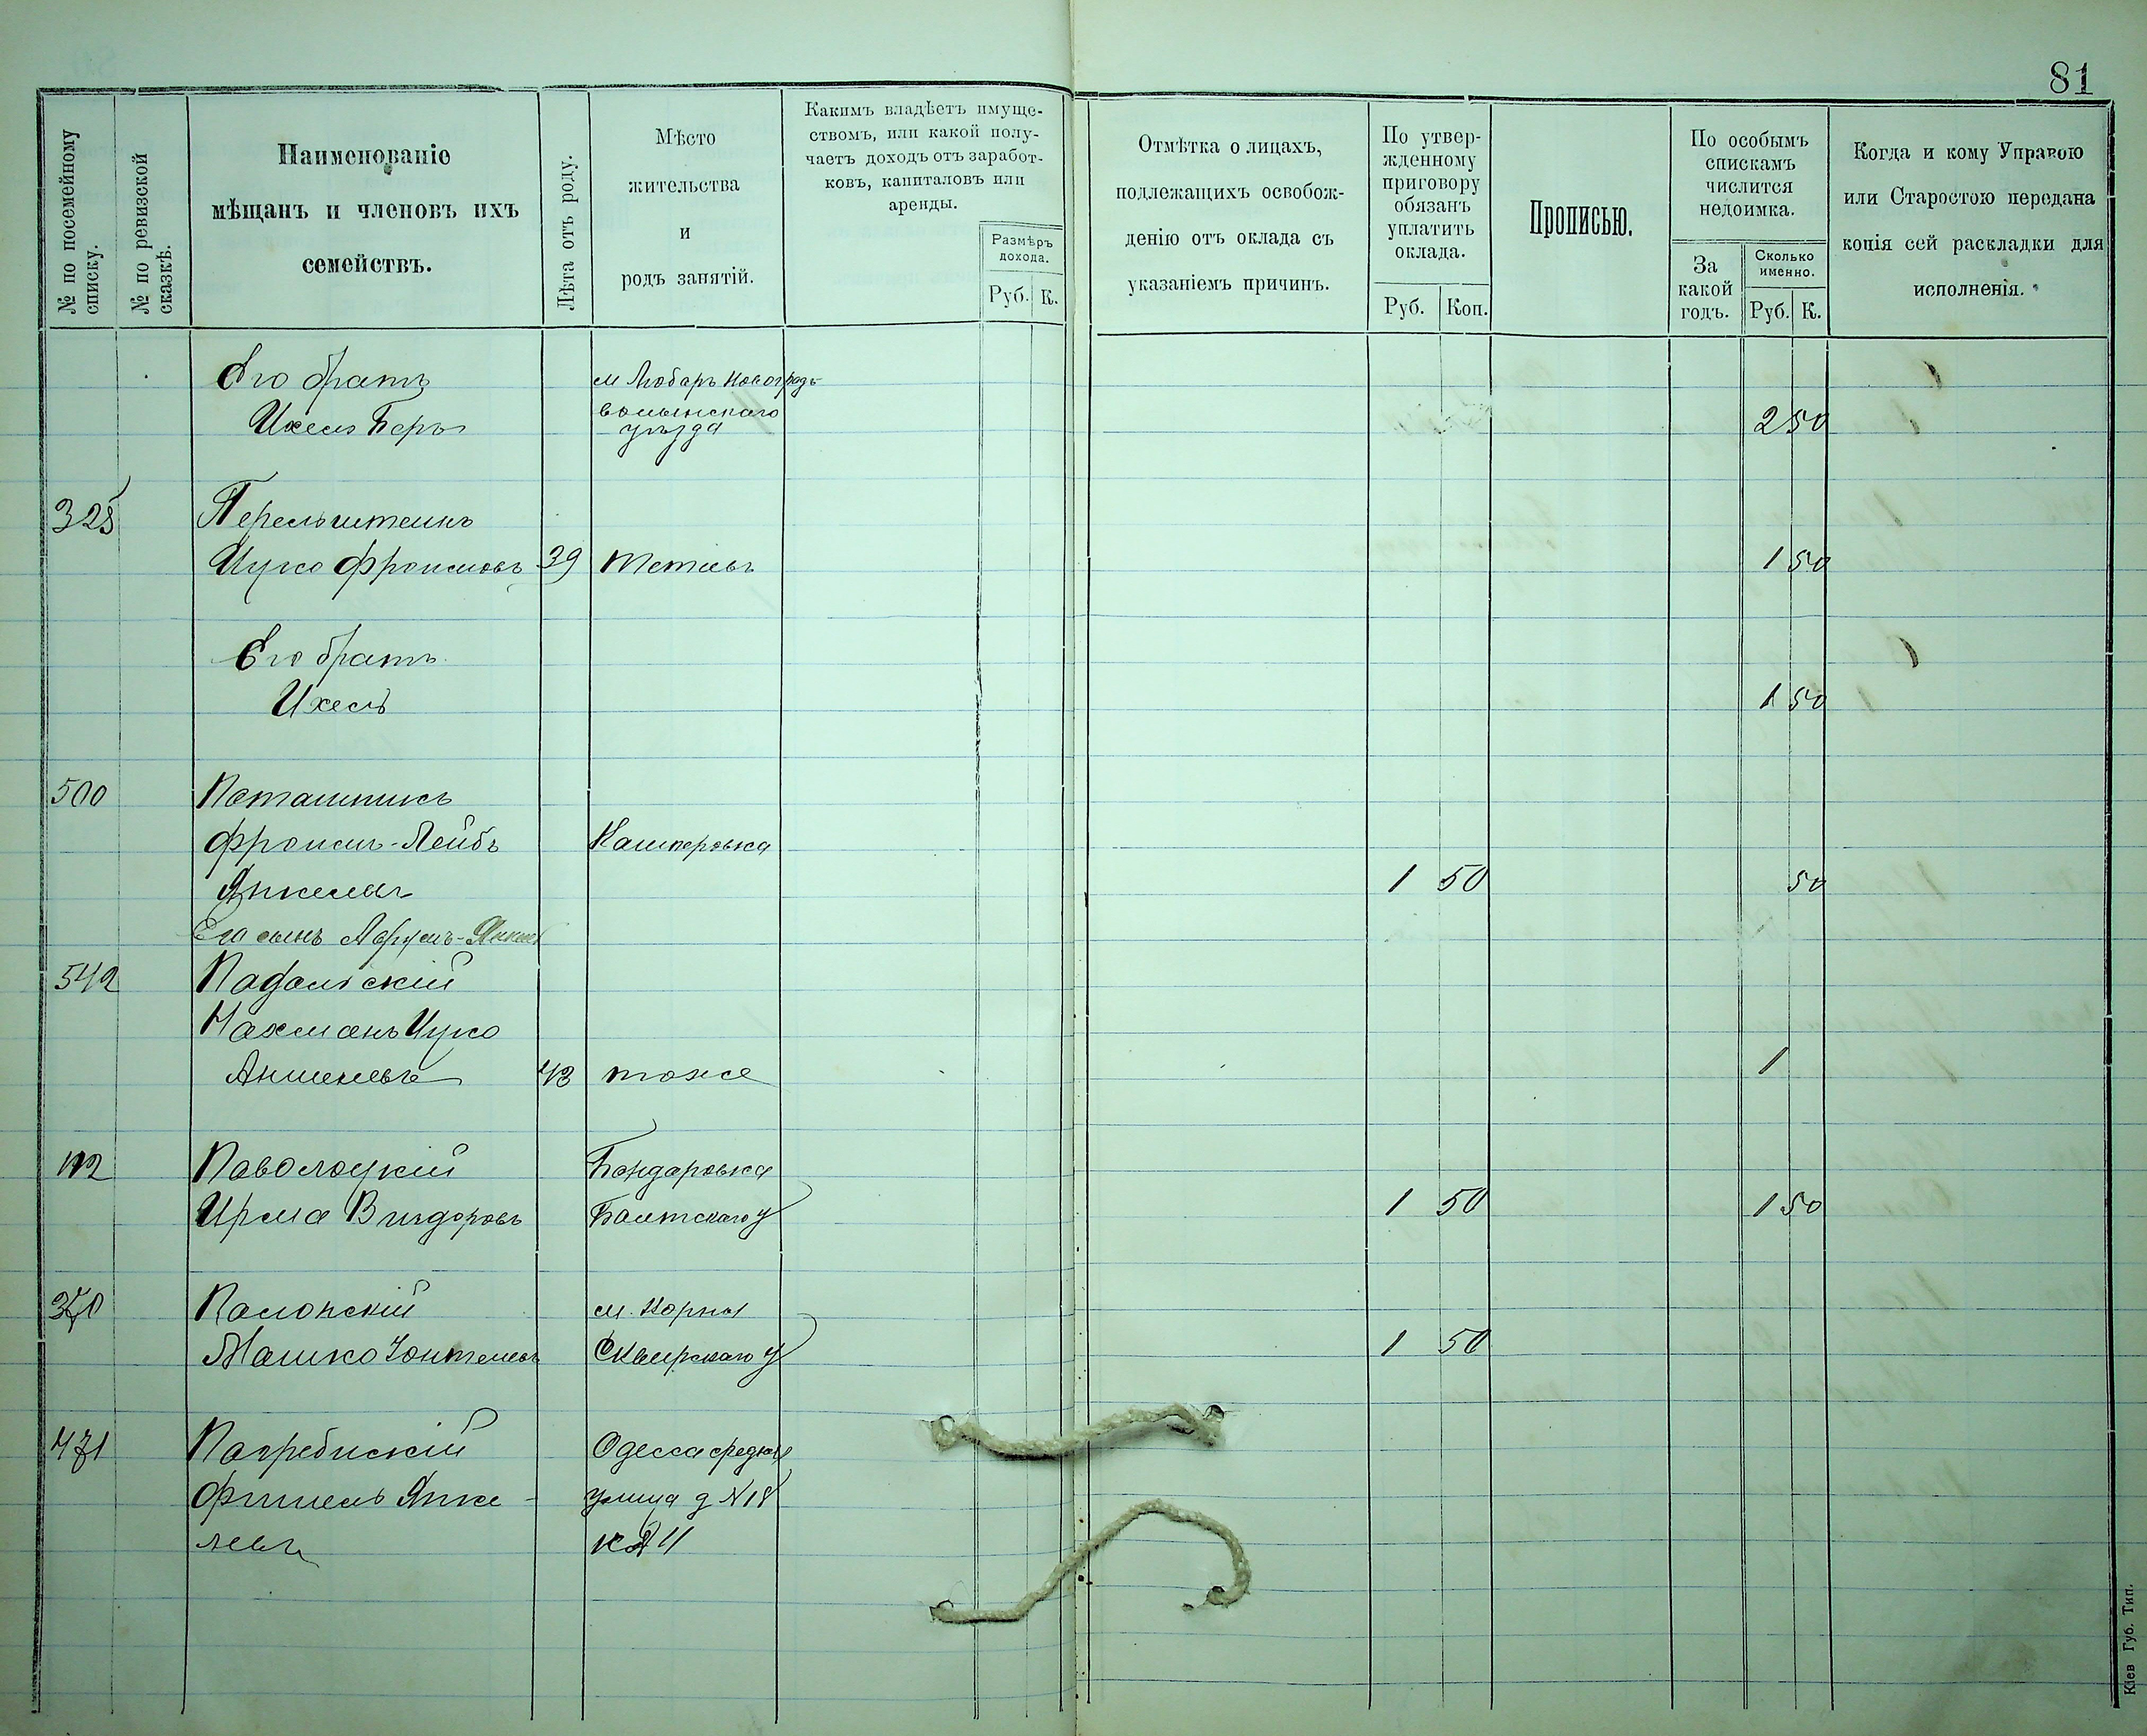 81
№ по посемейному списку.
№ по ревизской сказкѣ.
Наименованіе
мѣщанъ и членовъ ихъ
семействъ.
Лѣта отъ роду.
Мѣсто
жительства
и
родъ занятій.
Какимъ владѣетъ имуще-
ствомъ, или какой полу-
чаетъ доходъ отъ заработ-
ковъ, капиталовъ или
аренды.
Размѣръ
дохода.
Руб. К.
Отмѣтка о лицахъ,
подлежащихъ освобож-
денію отъ оклада съ
указаніемъ причинъ.
По утвер-
жденному
приговору
обязанъ
уплатить
оклада.
Руб. Коп.
Прописью.
По особымъ
спискамъ
числится
недоимка.
За
какой
годъ.
Сколько
именно.
Руб. К.
Когда и кому Управою
или Старостою передана
копія сей раскладки для
исполненія.
Его братъ м Любаръ Новоградъ-
волынскаго
Ихель Беръ уѣзда 2 50
325 Перельштейнъ
Ицко Фроимовъ 39 Тетіевъ 1 50
Его братъ
Ихель 1 50
500 Поташникъ
Фроимъ-Лейбъ Кашперовка
Янкелевъ 1 50 50
Его сынъ Аврумъ-Янкель
542 Подольскій
Нахманъ Ицко
Аншелевъ 43 тоже 1
112 Паволоцкій Бондаровка
Ирма Вигдоровъ Балтскаго у 1 50 1 50
Полонскій м. Корны
Мошко Сквирскаго у 1 50
471 Погребискій Одесса средняя
Фишель Янке- улица д N 18
левъ к N 11
Кіев Губ. Тип.